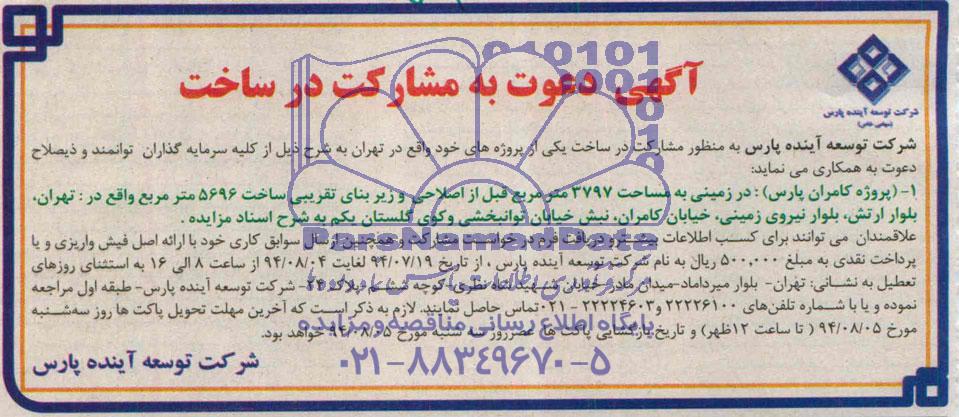 آگهی دعوت به مشارکت در ساخت
شرکت توسعه آینده پارس
(سهامی خاص)
شرکت توسعه آینده پارس به منظور مشارکت در ساخت یکی از پروژه های خود واقع در تهران به شرح ذیل از کلیه سرمایه گذاران توانمند و ذیصلاح
دعوت به همکاری می نماید:
۱- (پروژه کامران پارس) : در زمینی به مساحت ۳۷۹۷ متر مربع قبل از اصلاحی و زیر بنای تقریبی ساخت ۵۶۹۶ متر مربع واقع در : تهران،
بلوار ارتش، بلوار نیروی زمینی، خیابان کامران، نبش خیابان توانبخشی وکوی گلستان یکم به شرح اسناد مزایده .
علاقمندان می توانند برای کسب اطلاعات بیشتر و دریافت فرم در خواست مشارکت و همچنین ارسال سوابق کاری خود با ارائه اصل فیش واریزی و یا
پرداخت نقدی به مبلغ ۵۰۰,۰۰۰ ریال به نام شرکت توسعه آینده پارس ، از تاریخ ۹۴/۰۷/۱۹ لغایت ۹۴/۰۸/۰۴ از ساعت ۸ الی ۱۶ به استثنای روزهای
تعطیل به نشانی: تهران- بلوار میرداماد-میدان مادر-خیابان شهید شاه نظری-کوچه ششم- پلاک ۲۴- شرکت توسعه آینده پارس- طبقه اول مراجعه
نموده و یا با شماره تلفن‌های ۲۲۲۲۶۱۰۰ و۲۲۲۲۴۶۰۳-۰۲۱تماس حاصل نمایند. لازم به ذکر است که آخرین مهلت تحویل پاکت ها روز سه‌شنبه
مورخ ۹۴/۰۸/۰۵ ( تا ساعت ۱۲ظهر) و تاریخ بازگشایی پاکت ها عصرروز سه شنبه مورخ ۹۴/۰۸/۰۵ خواهد بود.
شرکت توسعه آینده پارس
ParsNamadData
پایگاه اطلاع رسانی مناقصه و مزایده
۰۲۱-۸۸۳۴۹۶۷۰-۵